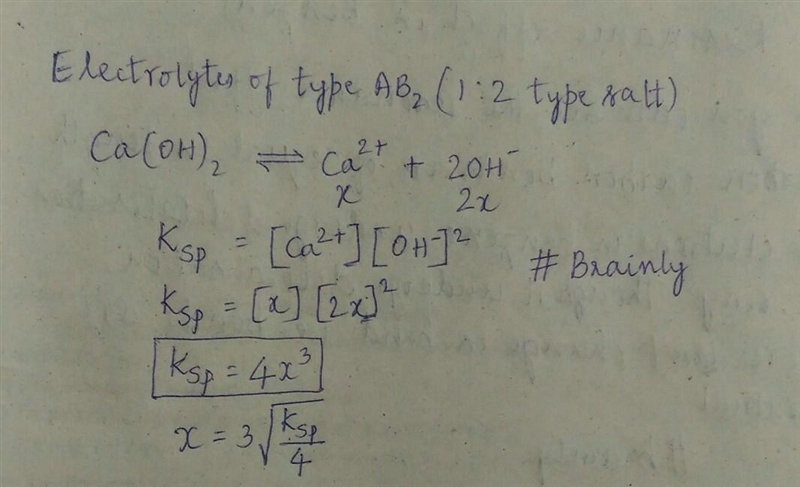 Electrolytes of type AB₂ (1:2 type salt)
Ca(OH)₂ ⇌ Ca²⁺ + 2OH⁻
x 2x
Ksp = [Ca²⁺] [OH⁻]²
# Brainly
Ksp = [x] [2x]²
Ksp = 4x³
x = 3√Ksp/4